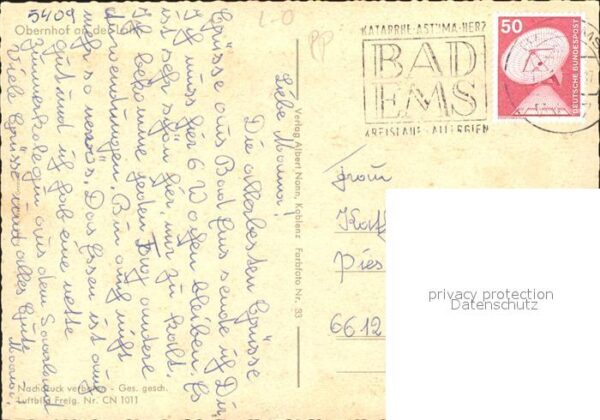 5409
Obernhof an der Lahn
L-0
PP
KATARRHE·ASTHMA·HERZ
BAD
EMS
KREISLAUF·ALLERGIEN
50
DEUTSCHE BUNDESPOST
Liebe
Die allerbesten Grüsse
Grüsse aus Bad Ems sende ich Dir
Ich muss hier 6 Wochen bleiben. Es
ist sehr schön hier, nur zu kalt.
Ich bekomme jeden Tag andere
Anwendungen. Bin auch nicht
mehr so nervös. Das Essen ist auch
gut und ich hab eine nette
Zimmerkollegin aus dem Sauerland
Viele Grüsse und alles Gute
Verlag Albert Nonn, Koblenz Farbfoto Nr. 53
Frau
6612
Nachdruck verboten - Ges. gesch.
Luftbild Freig. Nr. CN 1011
privacy protection
Datenschutz